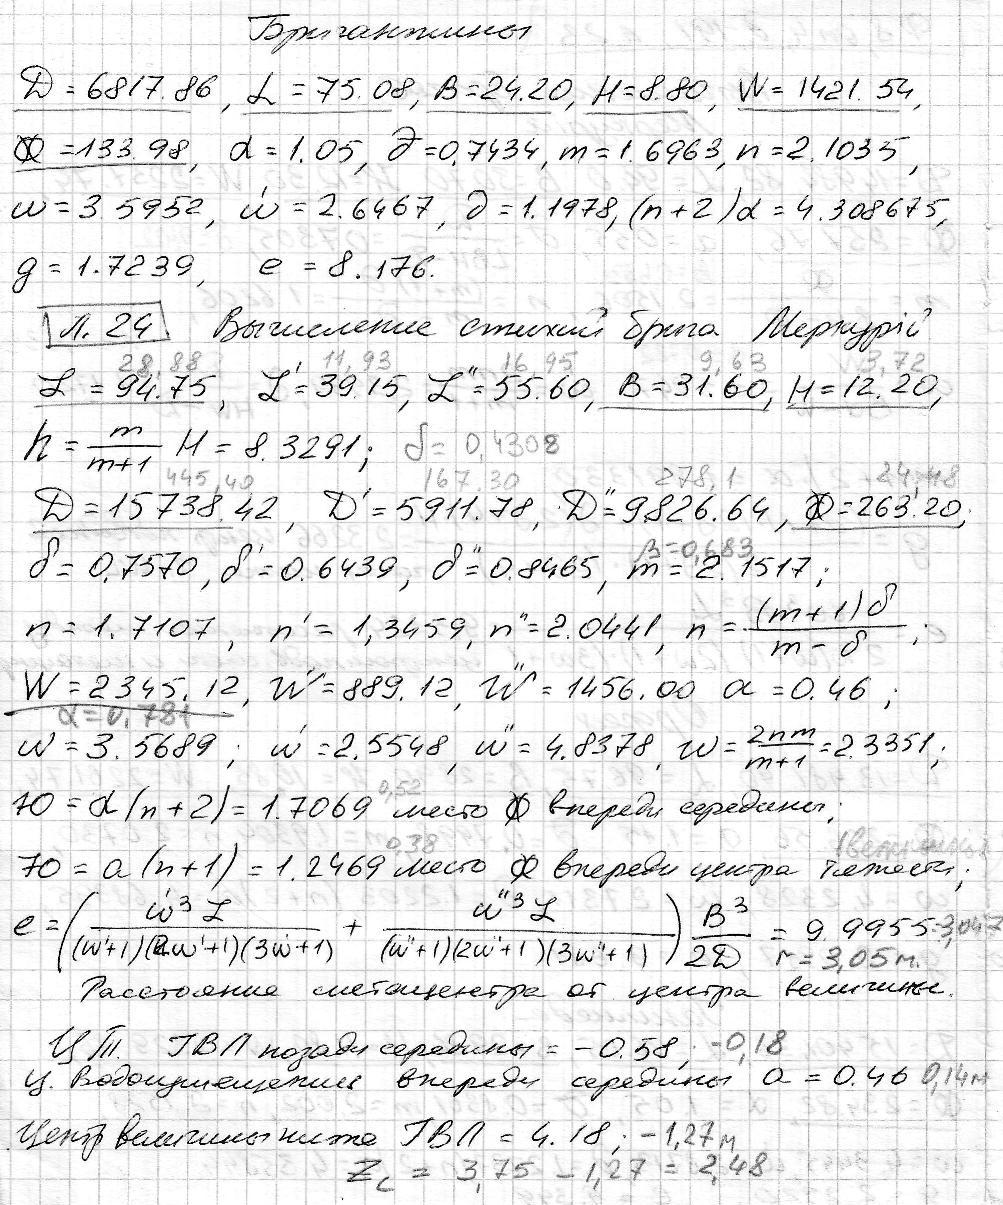 Бригантины
D = 6817.86, L = 75.08, B = 24.20, H = 8.80, W = 1421.54,
Ꝋ = 133.98, α = 1.05, ∂ = 0,7434, m = 1.6963, n = 2.1035,
w = 3.5952, w' = 2.6467, ∂ = 1.1978, (n+2)α = 4.308675,
g = 1.7239, e = 8.176.
Л. 24 Вычисление стихий брига Меркурій
28,88 11,93 16,95 9,63 3,72
L = 94.75, L' = 39.15, L'' = 55.60, B = 31.60, H = 12.20,
h = m/(m+1) H = 8.3291; δ = 0,4308
445,40 167.30 278,1 24,48
D = 15738.42, D' = 5911.78, D'' = 9826.64, Ꝋ = 263.20,
β = 0,683
δ = 0.7570, δ' = 0.6439, δ'' = 0.8465, m = 2.1517;
n = 1.7107, n' = 1,3459, n'' = 2.0441, n = (m+1)δ/(m-δ);
W = 2345.12, W' = 889.12, W'' = 1456.00 a = 0.46;
α = 0,781
w = 3.5689; w' = 2.5548, w'' = 4.8378, w = 2nm/(m+1) = 2.3351;
70 = α(n+2) = 1.7069 0,52 место Ꝋ впереди середины;
70 = a(n+1) = 1.2469 0,38 место Ꝋ впереди центра тяжести; (величины)
e = (w'³L/((w'+1)(2w'+1)(3w'+1)) + w''³L/((w''+1)(2w''+1)(3w''+1))) B³/2D = 9.9955 = 3,047
r = 3,05 м.
Расстояние метацентра от центра величины.
Ц.Т. ГВЛ позади середины = -0.58; -0,18
Ц. Водоизмещения впереди середины a = 0.46 0,14 м
Центр величины ниже ГВЛ = 4.18; -1,27 м
Zc = 3,75 - 1,27 = 2,48